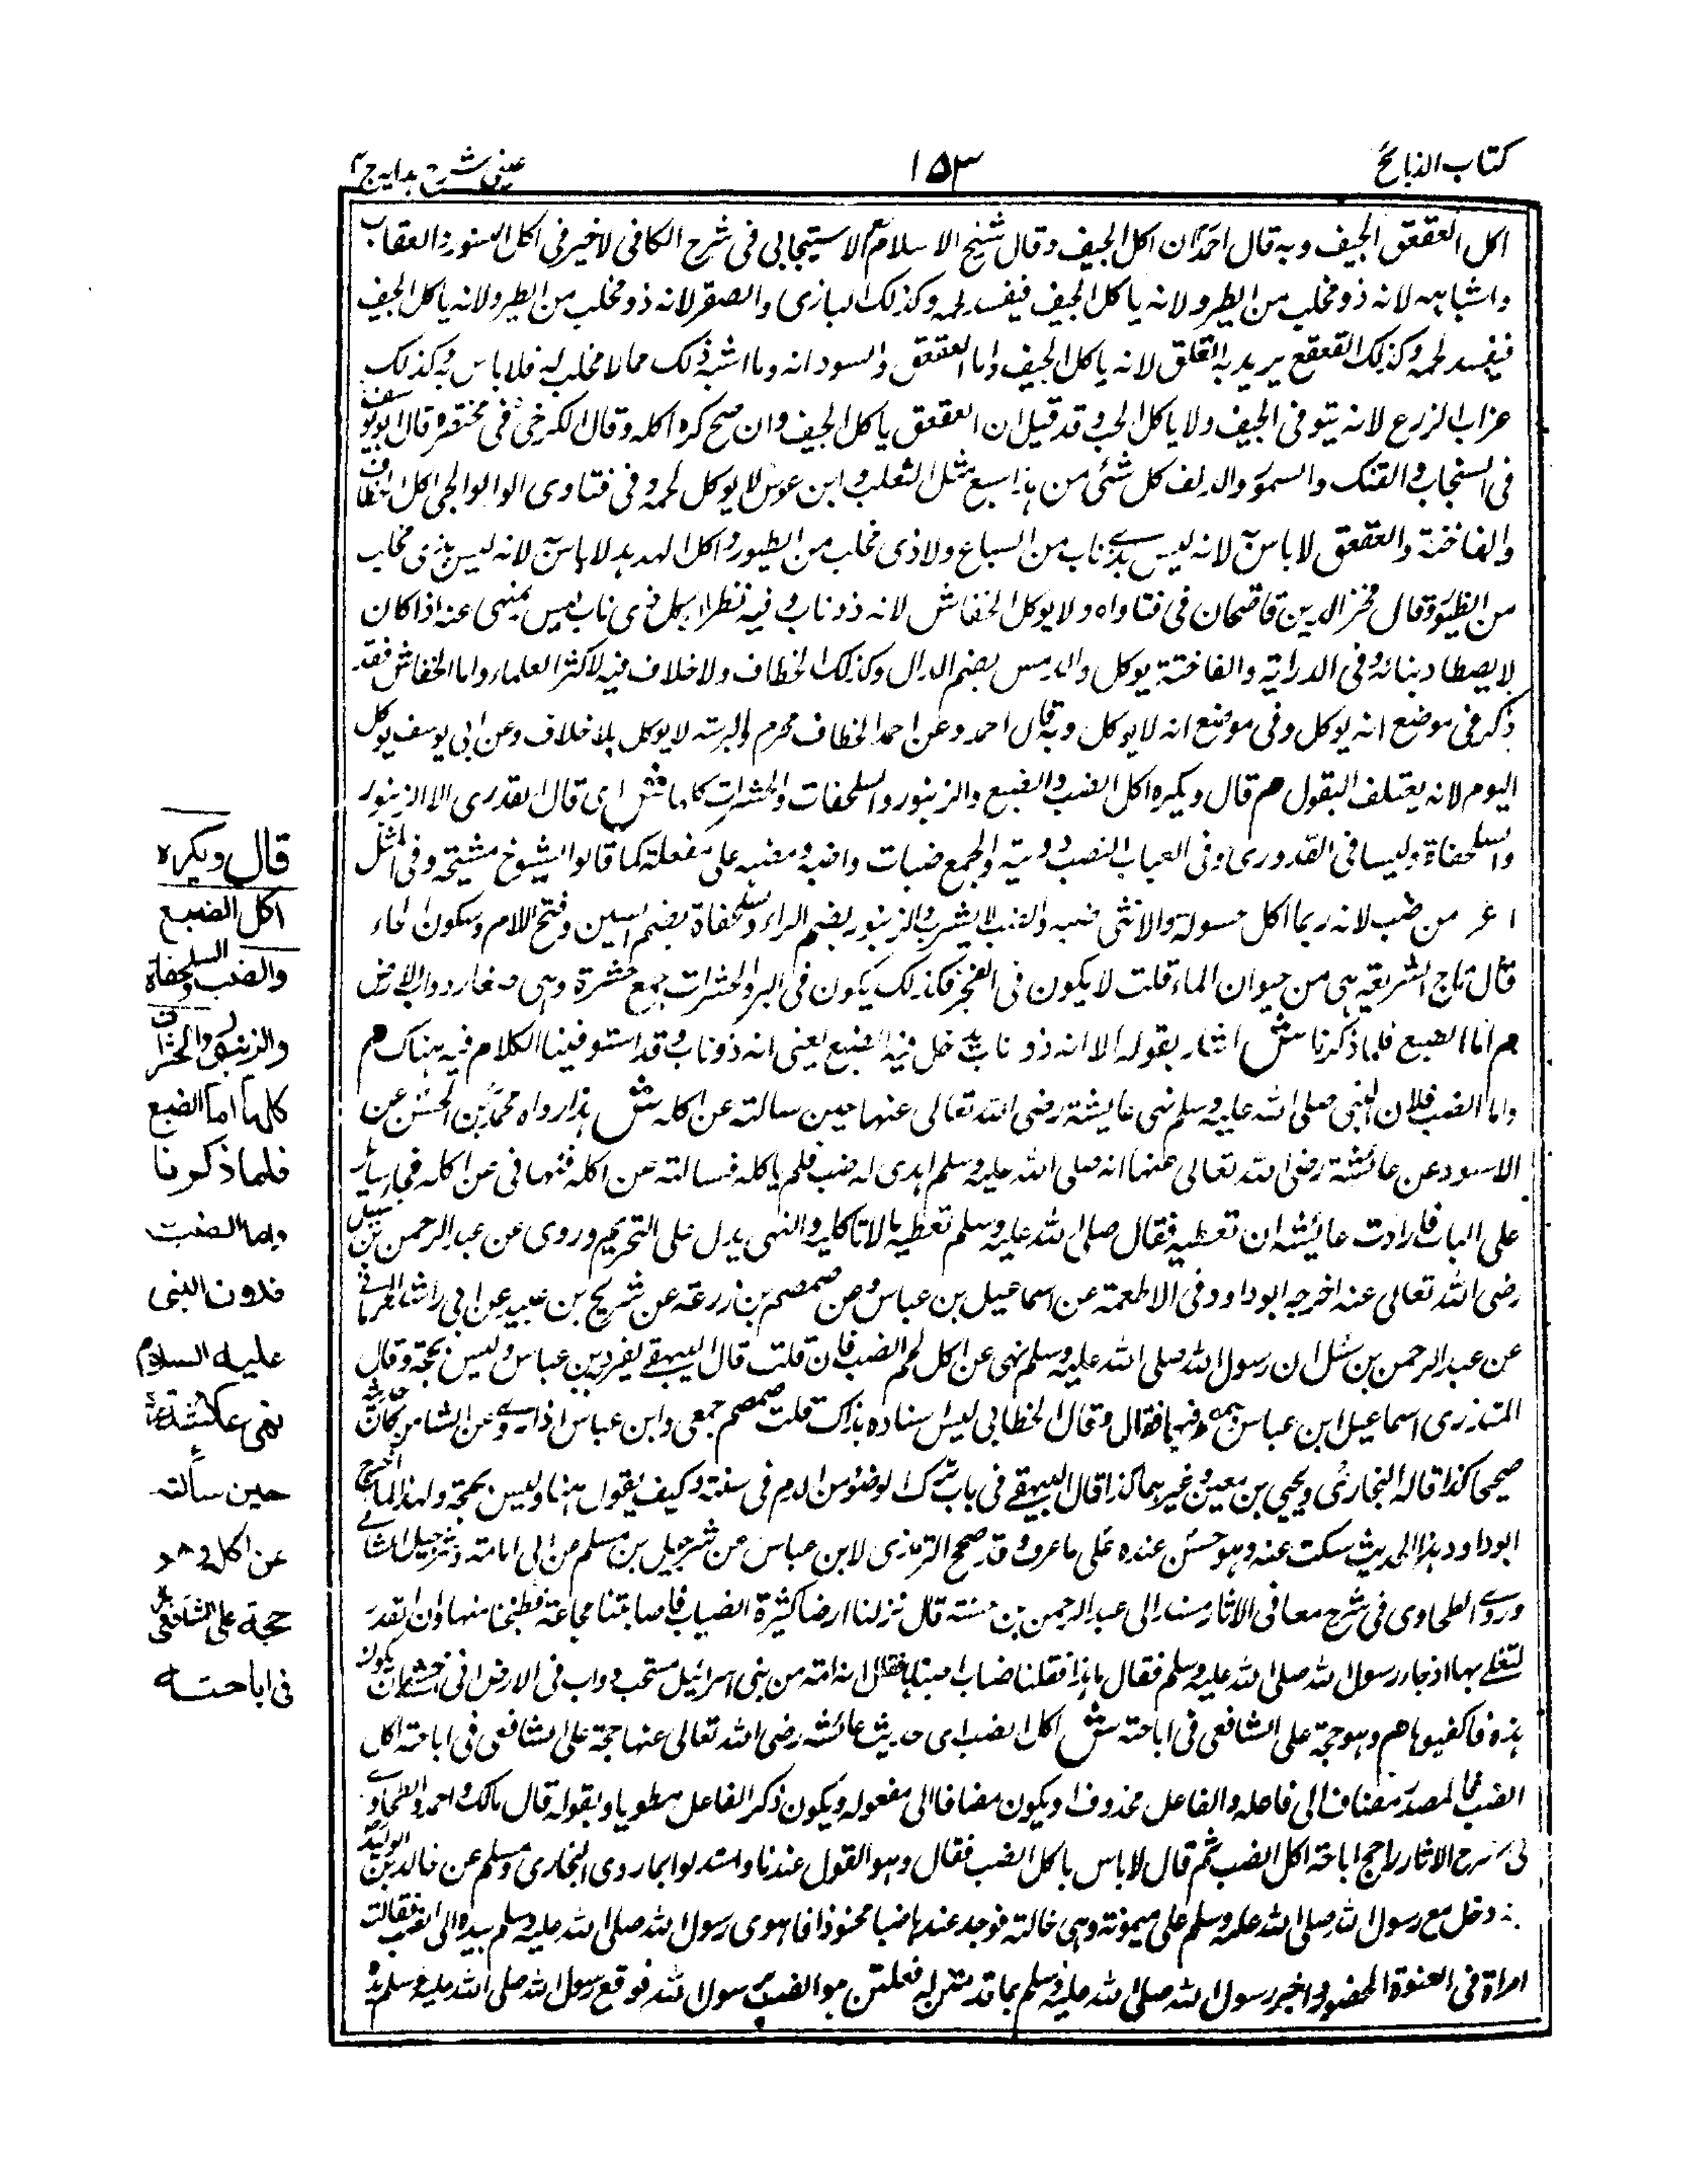 كتاب الذبائح
١٥٣
عينى شرح هدايه ج٤
اكل العقعق الجيف وبه قال احمد ان اكل الجيف وقال شيخ الاسلام الاسبيجابى فى شرح الكافى لاخير فى اكل النسور والعقاب
واشباهه لانه ذو مخلب من الطير ولانه ياكل الجيف فيفسد لحمه وكذلك البازى والصقر لانه ذو مخلب من الطير ولانه ياكل الجيف
فيفسد لحمه وكذلك القعقع يريد به القلق لانه ياكل الجيف واما العقعق والسودانه وما اشبه ذلك مما لا مخلب له فلا باس به كذلك
غراب الزرع لانه يتوقى الجيف ولا ياكل الحب وقد قيل ان العقعق ياكل الجيف وان صح كره اكله وقال الكرخى فى مختصره قال ابو يوسف
فى السنجاب والفنك والسمور والدلف كل شئى من هذا سبع مثل الثعلب وابن عرس لا يوكل لحمه وفى فتاوى الوالوالجى اكل الخطاف
والفاختة والعقعق لا باس به لانه ليس بذى ناب من السباع ولا ذى مخلب من الطيور واكل الهدهد لا باس به لانه ليس بذى مخلب
من الطيور وقال فخر الدين قاضيخان فى فتاواه ولا يوكل الخفاش لانه ذو ناب وفيه نظر لان كل ذى ناب ليس بمنهى عنه اذا كان
لا يصطاد بنابه وفى الدراية والفاختة يوكل والدبس بضم الدال وكذلك الخطاف ولا خلاف فيه لاكثر العلماء واما الخفاش فقد
ذكر فى موضع انه يوكل وفى موضع انه لا يوكل وبه قال احمد وعن احمد الخطاف محرم والبرته لا يوكل بلا خلاف وعن ابى يوسف يوكل
اليوم لانه يعتلف البقول هم قال ويكره اكل الضب والضبع والزنبور والسلحفات والحشرات كلها ش اى قال القدورى الا الزنبور
والسلحفاة وليسا فى القدورى وفى العباب الضب دويبة والجمع ضباب واضب ومضبه على مفعلة كما قالوا الشيوخ مشيخة وفى المثل
اعز من ضب لانه ربما اكل حسوله والانثى ضبه والضب لا يشرب والزنبور بضم الزاء والسلحفاة بضم السين وفتح اللام وسكون الحاء
قال تاج الشريعة هى من حيوان الماء قلت لا يكون فى البحر فكذلك يكون فى البر والحشرات جمع حشرة وهى صغار دواب الارض
هم اما الضبع فلما ذكرنا ش اشار بقوله الا انه ذو ناب يدخل فيه الضبع يعنى انه ذو ناب وقد استوفينا الكلام فيه هناك هم
واما الضب فلان النبى صلى الله عليه وسلم نهى عايشة رضى الله تعالى عنها حين سالته عن اكله ش هذا رواه محمد بن الحسن عن
الاسود عن عائشة رضى الله تعالى عنها انه صلى الله عليه وسلم اهدى له ضب فلم ياكله فسالته عن اكله فنهانى عن اكله فجاء سائل
على الباب فارادت عائشة ان تعطيه فقال صلى الله عليه وسلم تعطيه مالا تاكليه والنهى يدل على التحريم وروى عن عبد الرحمن بن شبل
رضى الله تعالى عنه اخرجه ابو داود فى الاطعمة عن اسماعيل بن عباس عن ضمضم بن زرعة عن شريح بن عبيد عن ابى راشد الحبرانى
عن عبد الرحمن بن شبل ان رسول الله صلى الله عليه وسلم نهى عن اكل لحم الضب فان قلت قال البيهقى تفرد به بن عباس وليس بحجة وقال
المنذرى اسماعيل ابن عباس وضمضم فيهما مقال وقال الخطابى ليس اسناده بذاك قلت ضمضم حمصى وابن عباس اذا روى عن الشامين كان حديثه
صحيحا كذا قاله البخارى ويحيى بن معين وغيرهما كذا قال البيهقى فى باب ترك الوضوء من الدم فى سننه وكيف يقول هنا وليس بحجة ولهذا لما اخرج
ابو داود هذا الحديث سكت عنه وهو حسن عنده على ما عرف وقد صحح الترمذى لابن عباس عن شرحبيل بن مسلم عن ابى امامة وشرحبيل شامى
وروى الطحاوى فى شرح معانى الاثار مسندا الى عبد الرحمن بن حسنة قال نزلنا ارضا كثيرة الضباب فاصابتنا مجاعة فطبخنا منها وان القدر
لتغلى بها اذ جاء رسول الله صلى الله عليه وسلم فقال ما هذا فقلنا ضباب اصبناها فقال ان امة من بنى اسرائيل مسخت دواب فى الارض انى خشيت ان يكون
هذه فاكفيوها هم وهو حجة على الشافعى فى اباحته ش اكل الضب اى حديث عائشة رضى الله تعالى عنها حجة على الشافعى فى اباحة اكل
الضب فالمصدر مضاف الى فاعله والفاعل محذوف او يكون مضافا الى مفعوله ويكون ذكر الفاعل مطويا وبقوله قال مالك واحمد والطحاوى
فى شرح الاثار راجح اباحة اكل الضب ثم قال لا باس باكل الضب فقال وهو القول عندنا واستدلوا بما روى البخارى ومسلم عن خالد بن الوليد
دخل مع رسول الله صلى الله عليه وسلم على ميمونة وهى خالته فوجد عندها ضبا محنوذا فاهوى رسول الله صلى الله عليه وسلم بيده الى الضب فقالت
امراة فى النسوة الحضور اخبر رسول الله صلى الله عليه وسلم بما قدمتن له فقلن هو الضب يا رسول الله فرفع رسول الله صلى الله عليه وسلم يده
قال ويكره
اكل الضبع
والضب والسلحفاة
والزنبور والحشرات
كلها اما الضبع
فلما ذكرنا
واما الضب
فلان النبى
عليه السلام
نهى عائشة رض
حين سألته
عن اكله وهو
حجة على الشافعى
فى اباحته